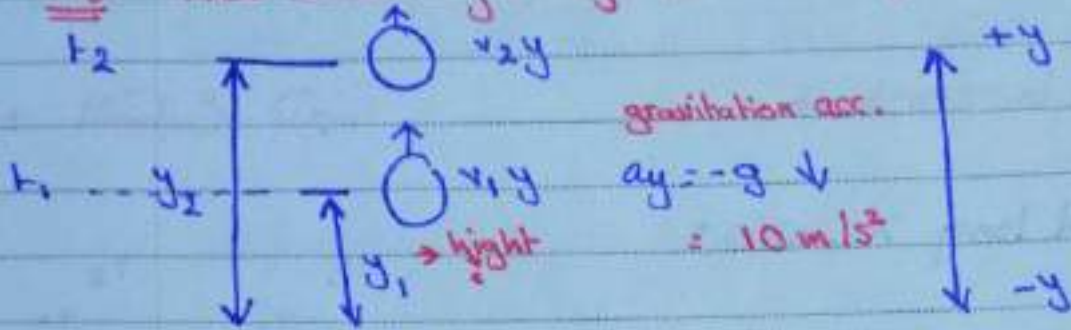 t2 v2y +y
gravitation acc.
t1 y2 v1y ay = -g ↓
y1 → hight = 10 m/s²
-y